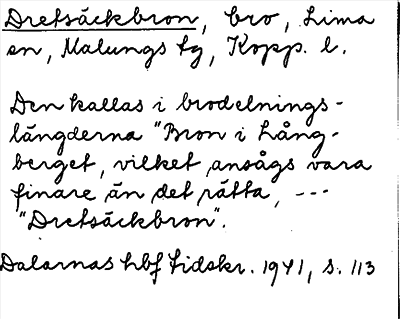 Dretsäckbron, bro, Lima
sn, Malungs tg, Kopp. l.
Den kallas i brodelnings-
längderna "Bron i Lång-
berget, vilket ansågs vara
finare än det rätta, ---
"Dretsäckbron".
Dalarnas hbf tidskr. 1941, s. 113